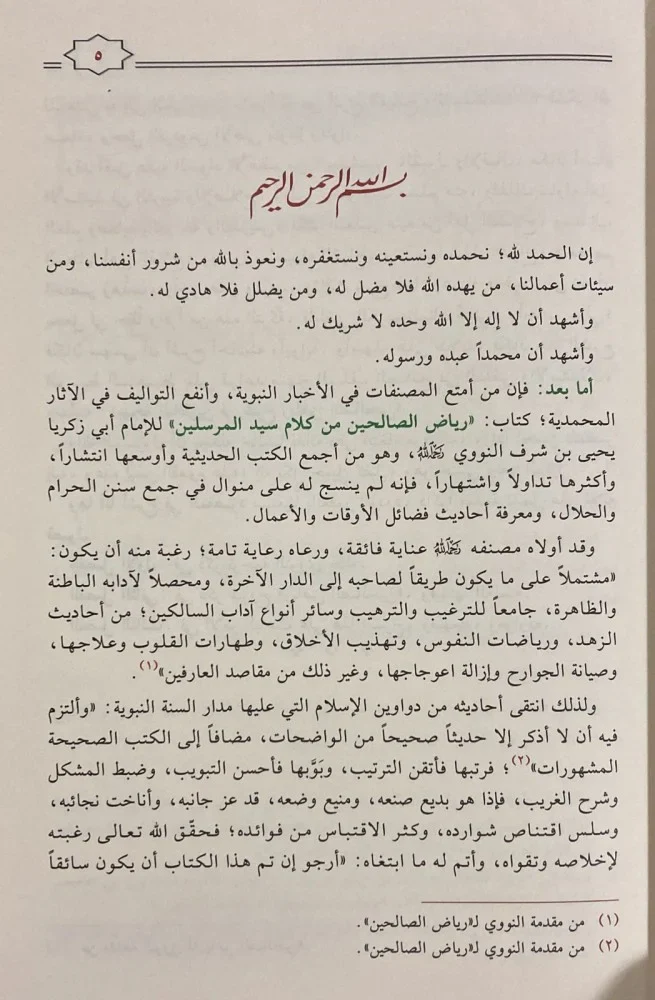 ٥
بسم الله الرحمن الرحيم
إن الحمد لله؛ نحمده ونستعينه ونستغفره، ونعوذ بالله من شرور أنفسنا، ومن
سيئات أعمالنا، من يهده الله فلا مضل له، ومن يضلل فلا هادي له.
وأشهد أن لا إله إلا الله وحده لا شريك له.
وأشهد أن محمداً عبده ورسوله.
أما بعد: فإن من أمتع المصنفات في الأخبار النبوية، وأنفع التواليف في الآثار
المحمدية؛ كتاب: «رياض الصالحين من كلام سيد المرسلين» للإمام أبي زكريا
يحيى بن شرف النووي رحمه الله، وهو من أجمع الكتب الحديثية وأوسعها انتشاراً،
وأكثرها تداولاً واشتهاراً، فإنه لم ينسج له على منوال في جمع سنن الحرام
والحلال، ومعرفة أحاديث فضائل الأوقات والأعمال.
وقد أولاه مصنفه رحمه الله عناية فائقة، ورعاه رعاية تامة؛ رغبة منه أن يكون:
«مشتملاً على ما يكون طريقاً لصاحبه إلى الدار الآخرة، ومحصلاً لآدابه الباطنة
والظاهرة، جامعاً للترغيب والترهيب وسائر أنواع آداب السالكين؛ من أحاديث
الزهد، ورياضات النفوس، وتهذيب الأخلاق، وطهارات القلوب وعلاجها،
وصيانة الجوارح وإزالة اعوجاجها، وغير ذلك من مقاصد العارفين»(١).
ولذلك انتقى أحاديثه من دواوين الإسلام التي عليها مدار السنة النبوية: «وألتزم
فيه أن لا أذكر إلا حديثاً صحيحاً من الواضحات، مضافاً إلى الكتب الصحيحة
المشهورات»(٢)؛ فرتبها فأتقن الترتيب، وبَوَّبها فأحسن التبويب، وضبط المشكل
وشرح الغريب، فإذا هو بديع صنعه، ومنيع وضعه، قد عز جانبه، وأناخت نجائبه،
وسلس اقتناص شوارده، وكثر الاقتباس من فوائده؛ فحقّق الله تعالى رغبته
لإخلاصه وتقواه، وأتم له ما ابتغاه: «أرجو إن تم هذا الكتاب أن يكون سائقاً
(١) من مقدمة النووي لـ«رياض الصالحين».
(٢) من مقدمة النووي لـ«رياض الصالحين».